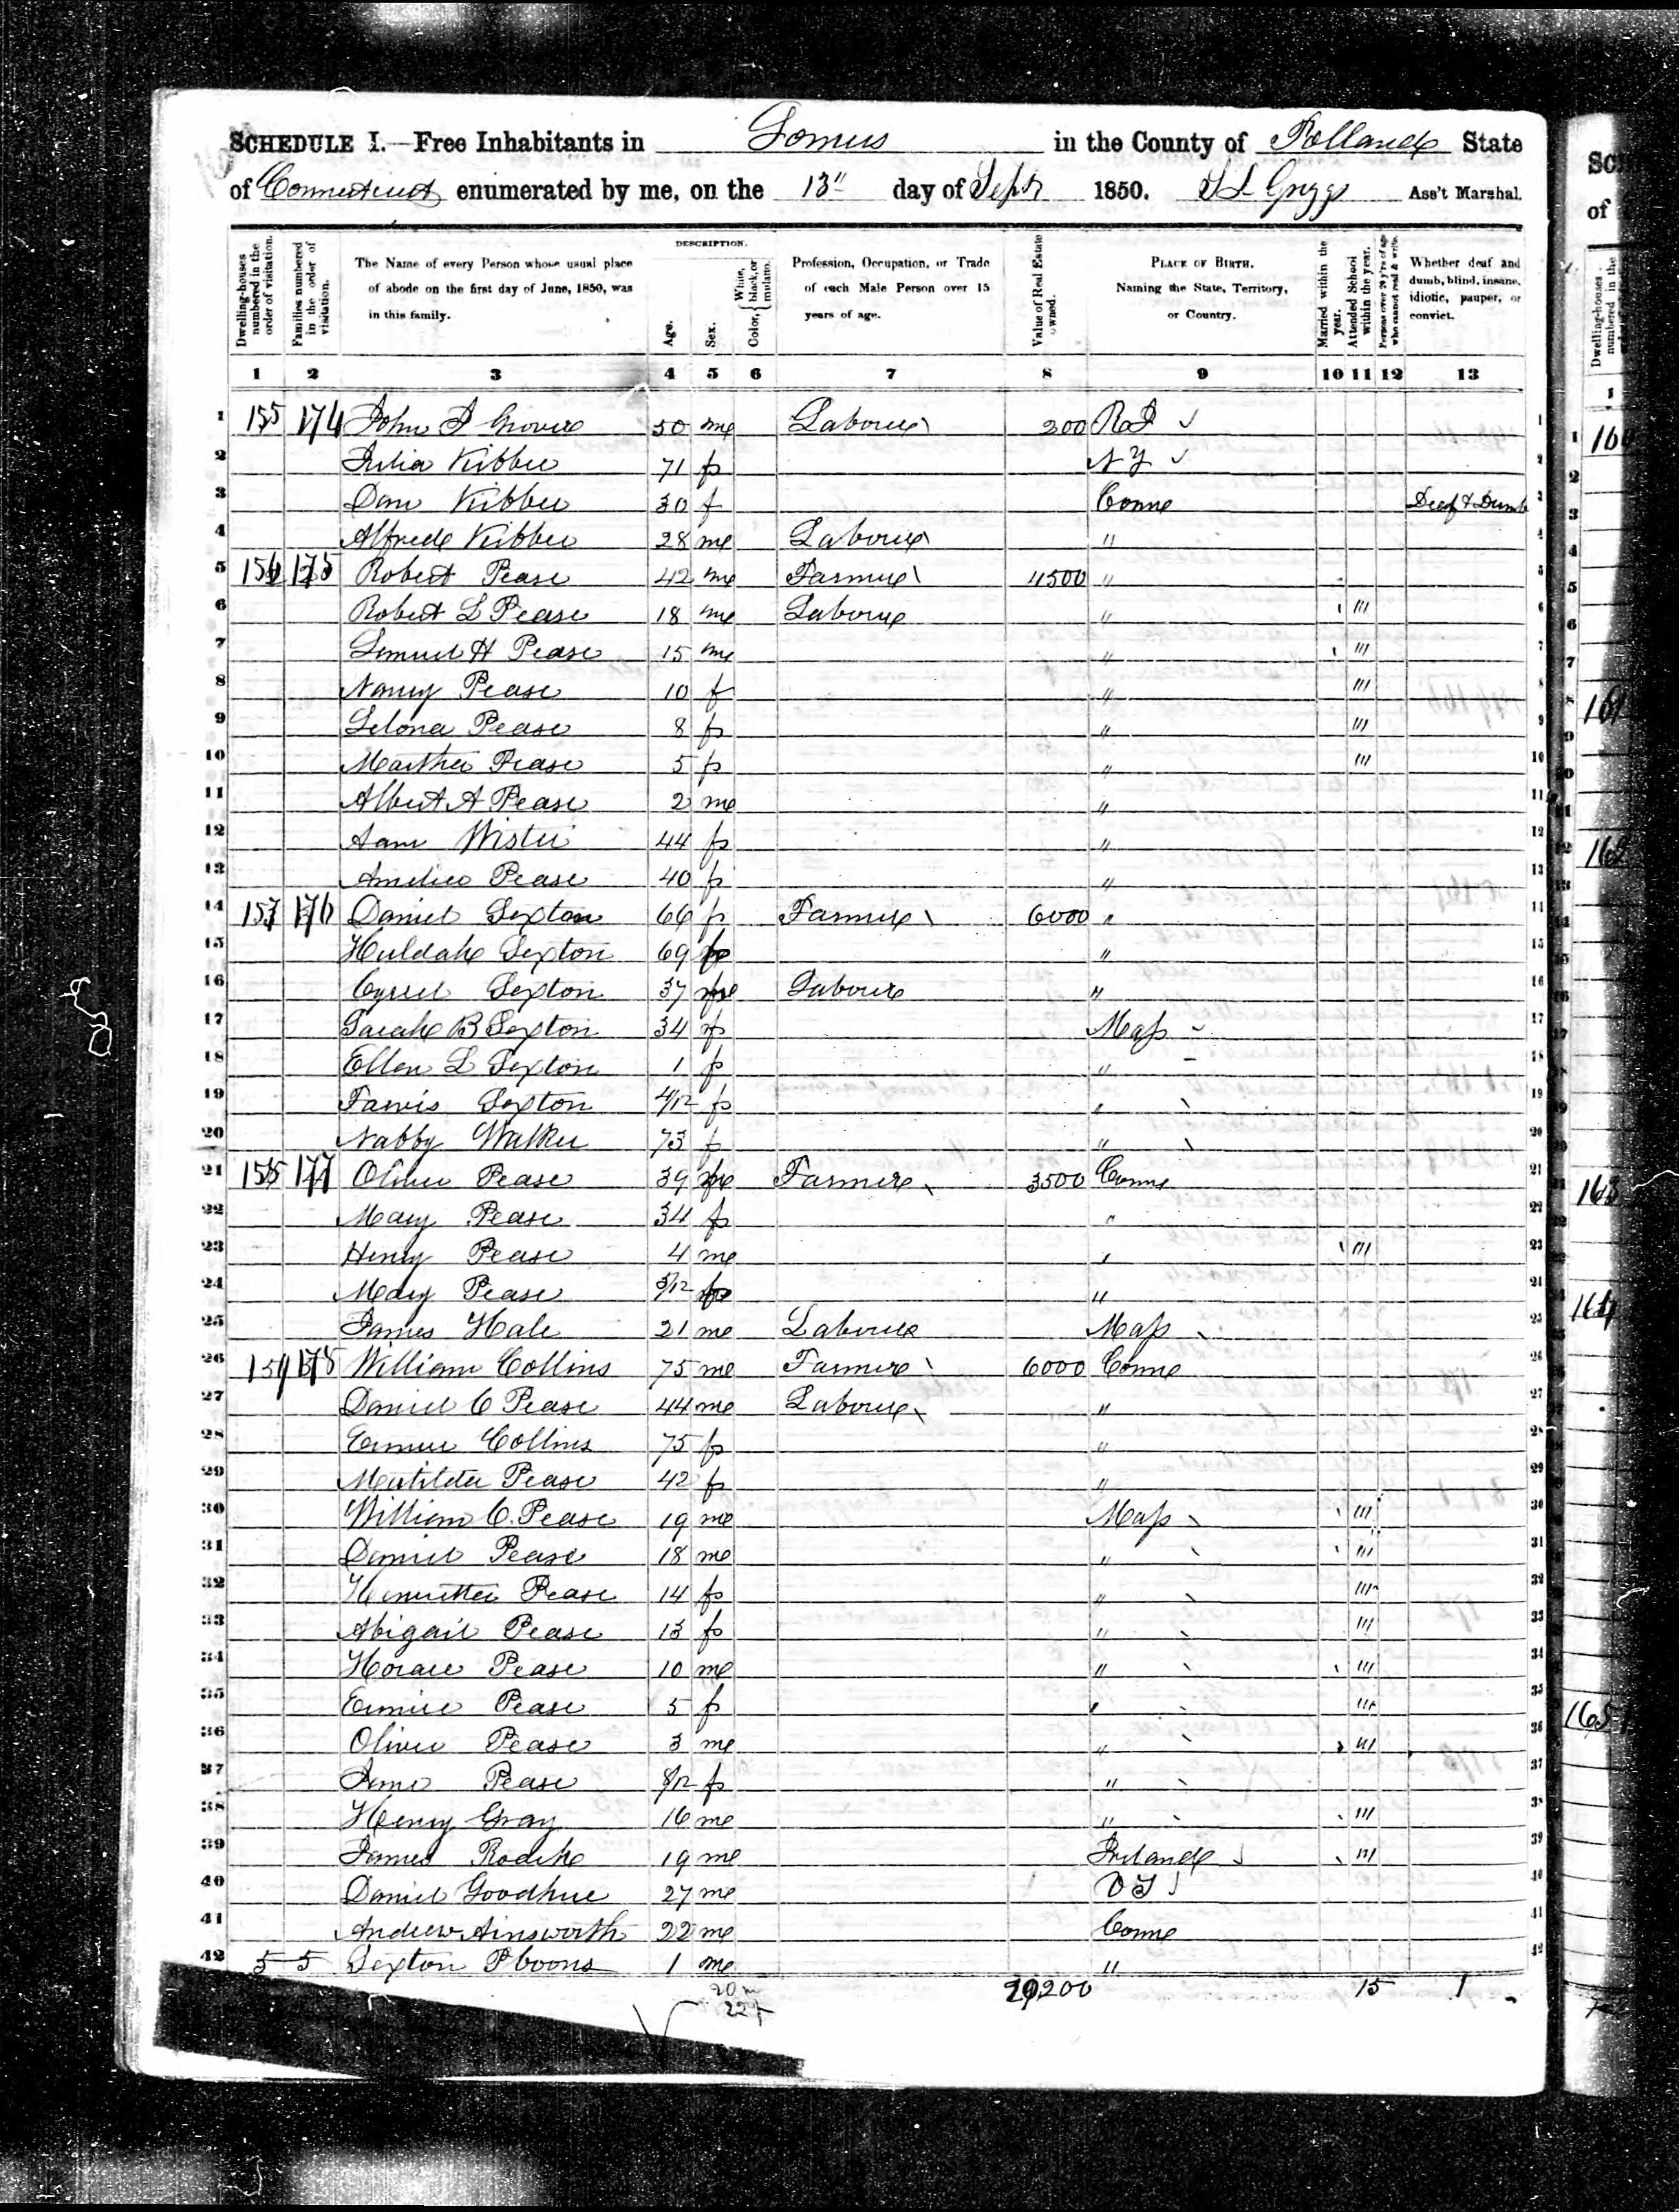 SCHEDULE I.—Free Inhabitants in Somers in the County of Tolland State
of Connecticut enumerated by me, on the 13" day of Sept 1850. S L Griggs Ass't Marshal.
DESCRIPTION.
Dwelling-houses numbered in the order of visitation.
Families numbered in the order of visitation.
The Name of every Person whose usual place of abode on the first day of June, 1850, was in this family.
Age.
Sex.
Color, { White, black, or mulatto.
Profession, Occupation, or Trade of each Male Person over 15 years of age.
Value of Real Estate owned.
PLACE OF BIRTH. Naming the State, Territory, or Country.
Married within the year.
Attended School within the year.
Persons over 20 y'rs of age who cannot read & write.
Whether deaf and dumb, blind, insane, idiotic, pauper, or convict.
1 2 3 4 5 6 7 8 9 10 11 12 13
1 155 174 John Grover 50 m Laborer 200 R I 1
2 Julia Kibbee 71 f N Y 2
3 Kibbee 30 f Conn Deaf & Dumb 3
4 Alfred Kibbee 28 m Laborer " 4
5 156 175 Robert Pease 42 m Farmer 4500 " 5
6 Robert L Pease 18 m Laborer " /// 6
7 Lemuel H Pease 15 m " /// 7
8 Nancy Pease 10 f " /// 8
9 Pease 8 f " /// 9
10 Martha Pease 5 f " /// 10
11 Albert A Pease 2 m " 11
12 44 f " 12
13 Amelia Pease 40 f " 13
14 157 176 Daniel Sexton 66 f Farmer 6000 " 14
15 Huldah Sexton 69 f " 15
16 Sexton 37 m Laborer " 16
17 Sarah B Sexton 34 f Mass 17
18 Ellen L Sexton 1 f " 18
19 Sexton 4/12 f " 19
20 Nabby Walker 73 f " 20
21 158 177 Oliver Pease 39 m Farmer 3500 Conn 21
22 Mary Pease 34 f " 22
23 Henry Pease 4 m " /// 23
24 Mary Pease 5/12 f " 24
25 James Hale 21 m Laborer Mass 25
26 159 178 William Collins 75 m Farmer 6000 Conn 26
27 Daniel C Pease 44 m Laborer " 27
28 Collins 75 f " 28
29 Matilda Pease 42 f " 29
30 William C. Pease 19 m Mass /// 30
31 Daniel Pease 18 m " /// 31
32 Pease 14 f " /// 32
33 Abigail Pease 13 f " /// 33
34 Horace Pease 10 m " /// 34
35 Pease 5 f " /// 35
36 Oliver Pease 3 m " /// 36
37 Jane Pease f " 37
38 Henry Gray 16 m " /// 38
39 James 19 m Ireland /// 39
40 Daniel Goodhue 27 m 40
41 Andrew Ainsworth 22 m Conn 41
42 5 5 Sexton 1 m " 42
20 m
22 f
20,200 15 1